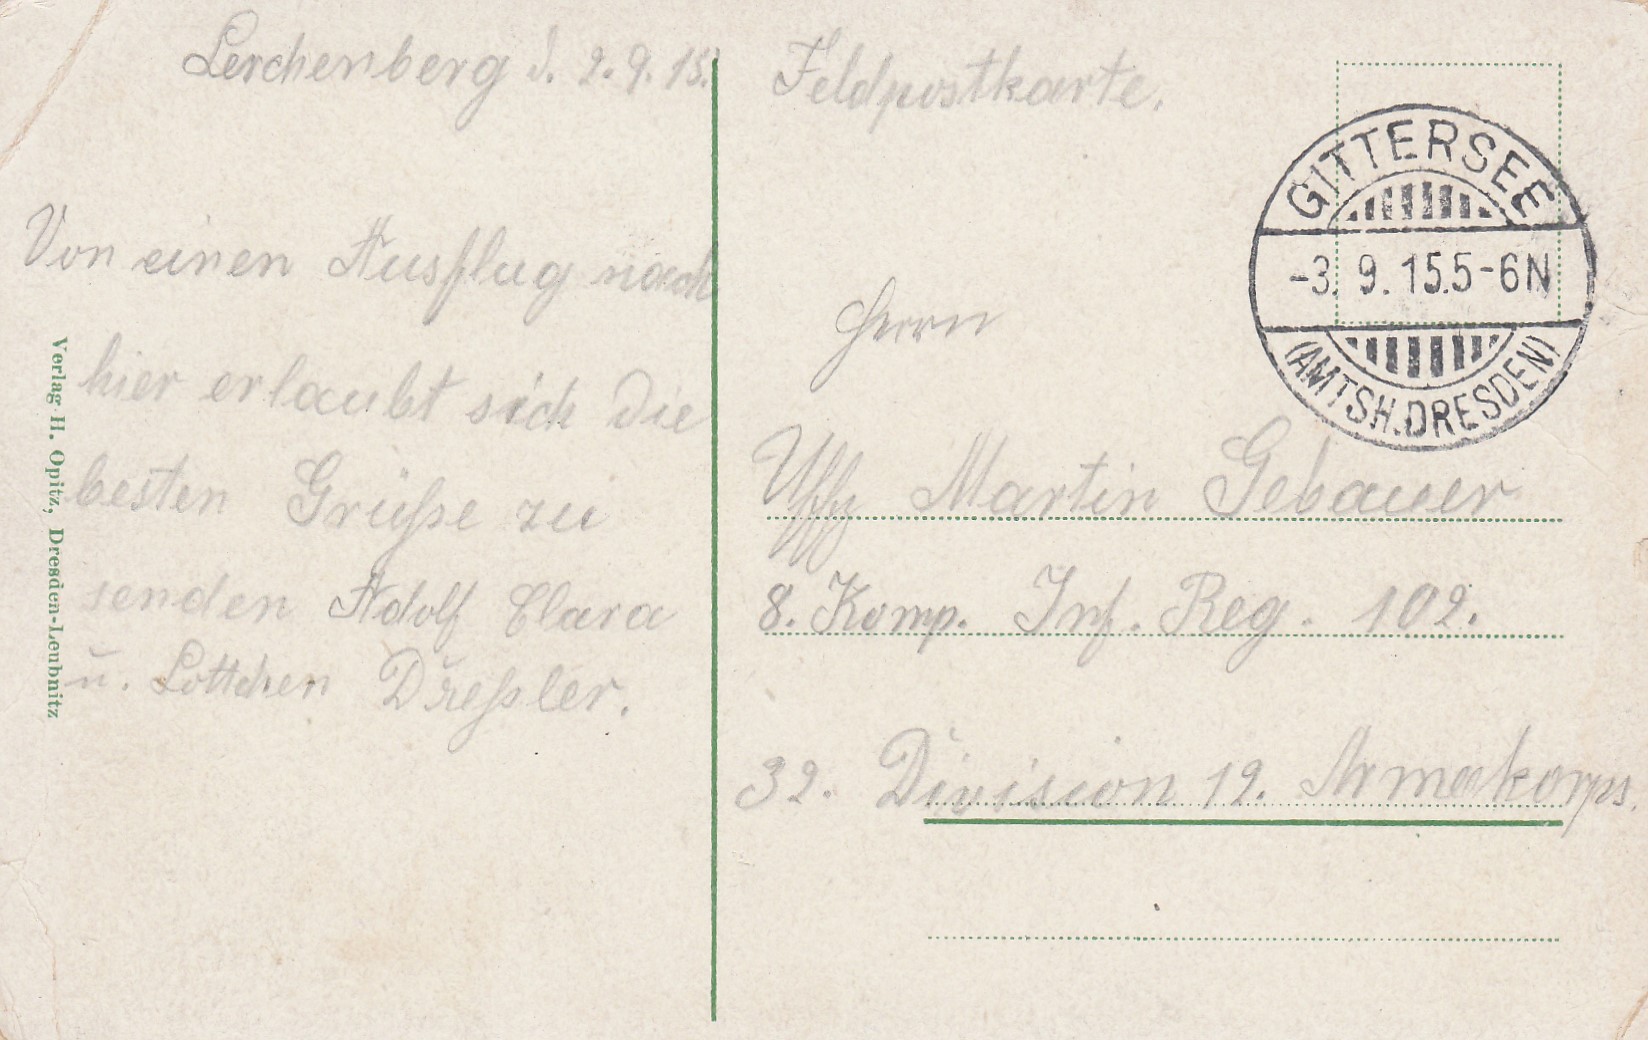 Lerchenberg d. 2.9.15.
Von einen Ausflug nach
hier erlaubt sich die
besten Grüße zu
senden Adolf Clara
u. Lottchen Dreßler.
Verlag H. Opitz, Dresden-Leubnitz
Feldpostkarte.
GITTERSEE
-3. 9. 15.5-6N
(AMTSH. DRESDEN)
Herrn
Uffz Martin Gebauer
8. Komp. Inf. Reg. 102.
32. Division 12. Armeekorps.